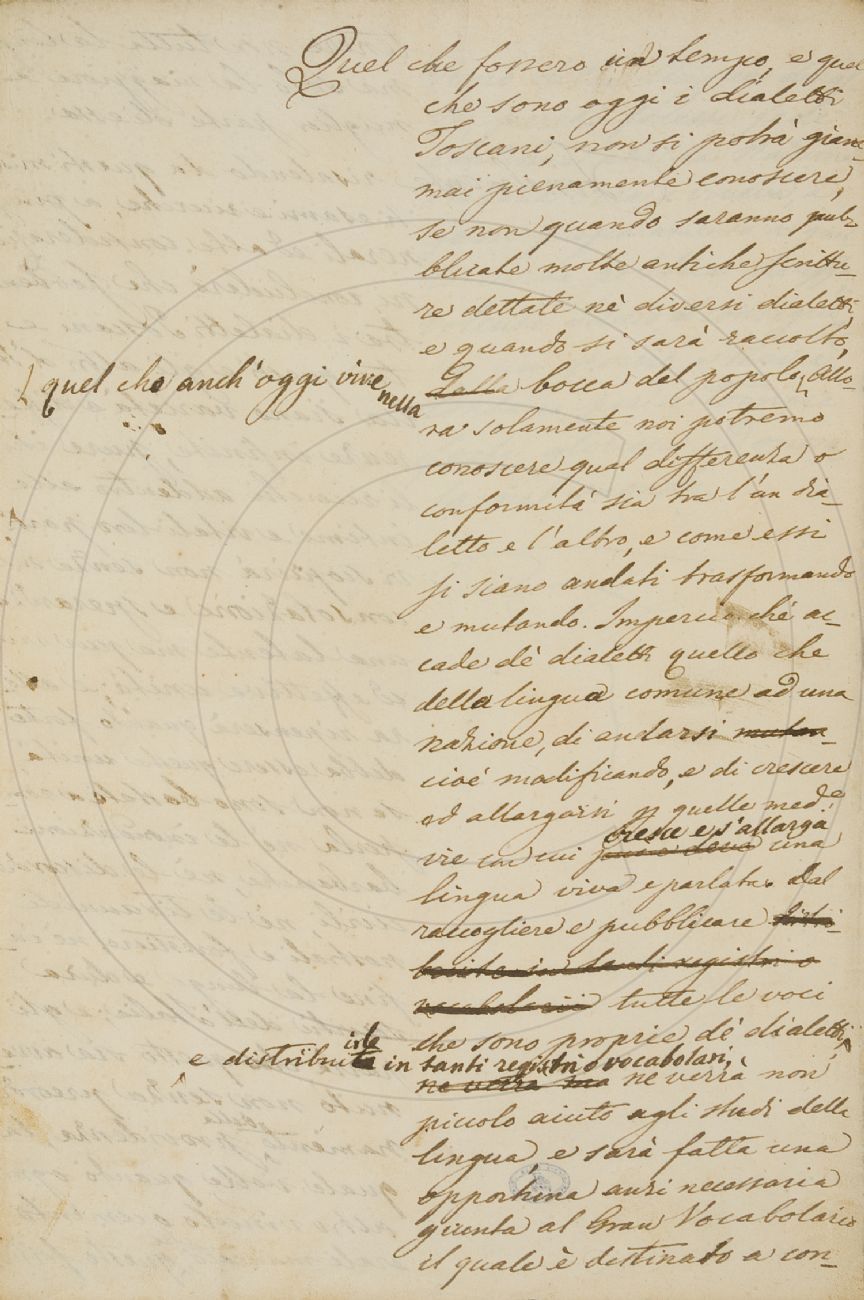 Quel che fossero un tempo, e quel
che sono oggi i dialetti
Toscani, non si potrà giam-
mai pienamente conoscere,
se non quando saranno pub-
blicate molte antiche scrittu-
re dettate nè diversi dialetti,
e quando si sarà raccolto,
quel che anch'oggi vive nella
dalla bocca del popolo. Allo-
ra solamente noi potremo
conoscere qual differenza o
conformità sia tra l'un dia-
letto e l'altro, e come essi
si siano andati trasformando
e mutando. Imperciocché ac-
cade dè dialetti quello che
della lingua comune ad una
nazione, di andarsi mutan-
cioè modificando, e di crescere
ed allargarsi p quelle med.e
cresce e s'allarga
vie in cui una
lingua viva e parlata. Dal
raccogliere e pubblicare distri-
buite in tanti registri o
vocabolarii tutte le voci
che sono proprie dè dialetti,
e distribuirle in tanti registri o vocabolari,
ne verrà ma ne verrà non
piccolo aiuto agli studi della
lingua, e sarà fatta una
opportuna anzi necessaria
giunta al Gran Vocabolario
il quale è destinato a con-